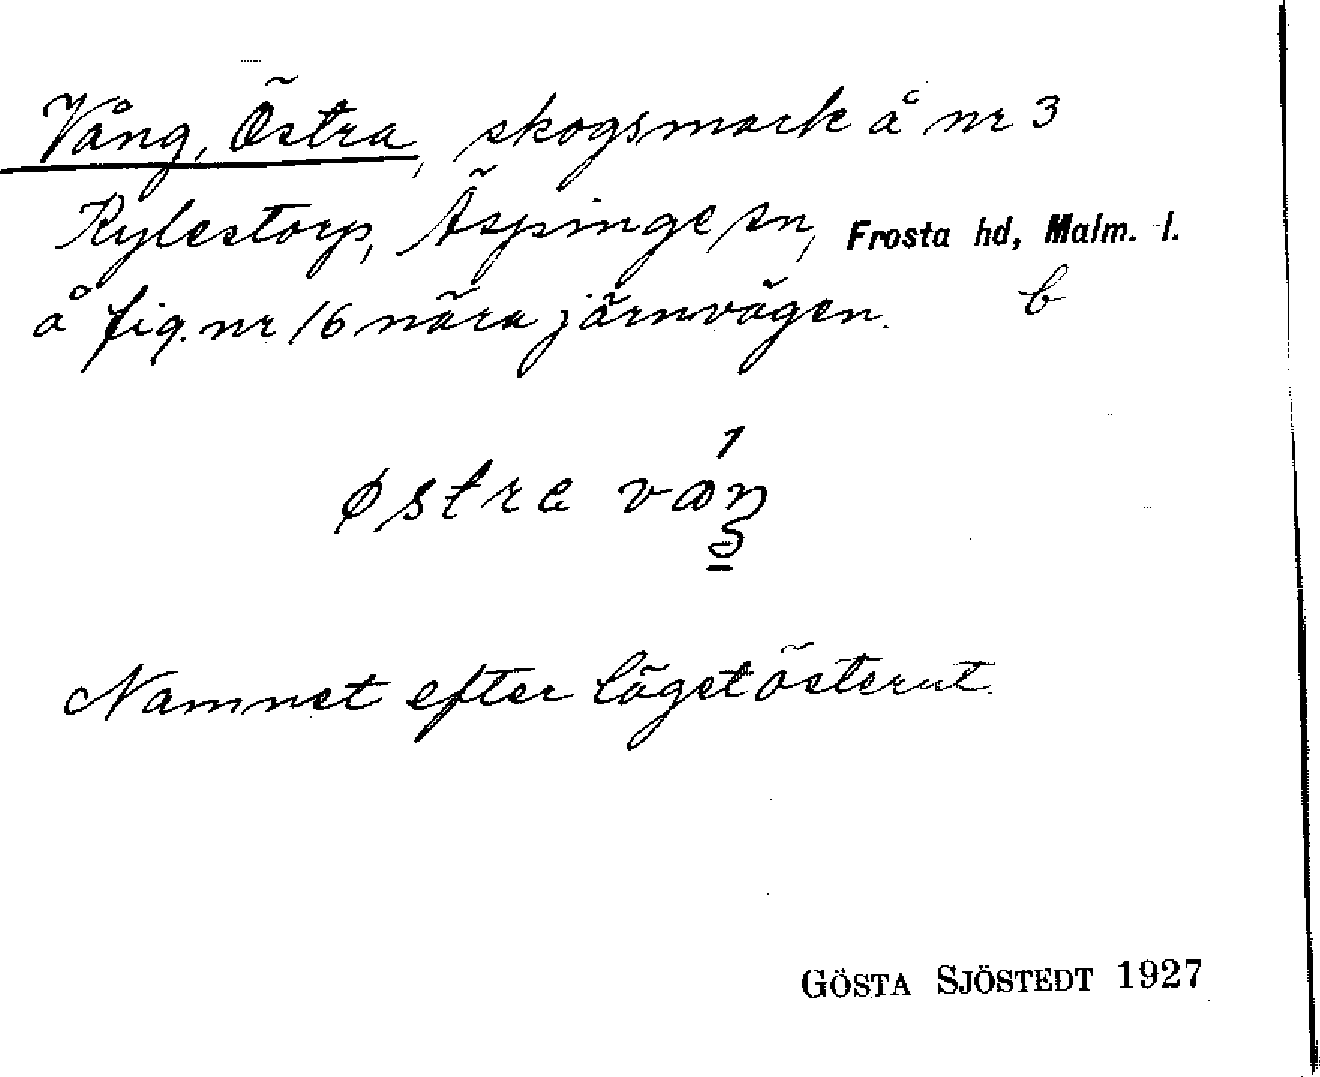 Vång, Östra, skogsmark å nr 3
Rylestorp, Äspinge sn, Frosta hd, Malm. l.
å fig. nr 16 nära järnvägen. b
østra
Namnet efter läget österut.
GÖSTA SJÖSTEDT 1927